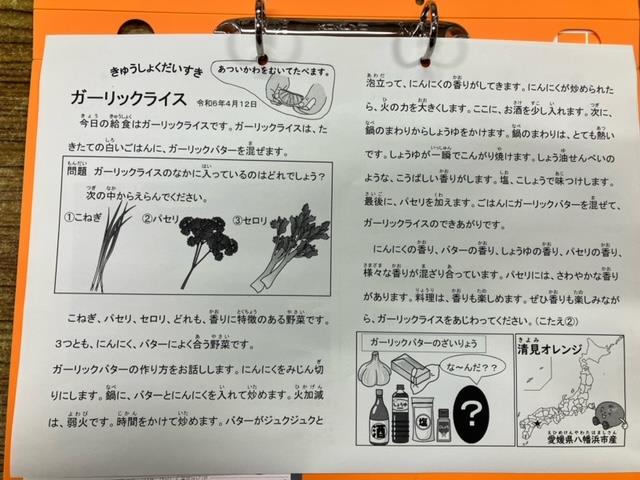 きゅうしょくだいすき
あついかわをむいてたべます。
ガーリックライス 令和6年4月12日
今日の給食はガーリックライスです。ガーリックライスは、た
きたての白いごはんに、ガーリックバターを混ぜます。
問題 ガーリックライスのなかに入っているのはどれでしょう？
次の中からえらんでください。
①こねぎ ②パセリ ③セロリ
こねぎ、パセリ、セロリ、どれも、香りに特徴のある野菜です。
3つとも、にんにく、バターによく合う野菜です。
ガーリックバターの作り方をお話しします。にんにくをみじん切
りにします。鍋に、バターとにんにくを入れて炒めます。火加減
は、弱火です。時間をかけて炒めます。バターがジュクジュクと
泡立って、にんにくの香りがしてきます。にんにくが炒められた
ら、火の力を大きくします。ここに、お酒を少し入れます。次に、
鍋のまわりからしょうゆをかけます。鍋のまわりは、とても熱い
です。しょうゆが一瞬でこんがり焼けます。しょう油せんべいの
ような、こうばしい香りがします。塩、こしょうで味つけします。
最後に、パセリを加えます。ごはんにガーリックバターを混ぜて、
ガーリックライスのできあがりです。
にんにくの香り、バターの香り、しょうゆの香り、パセリの香り、
様々な香りが混ざり合っています。パセリには、さわやかな香り
があります。料理は、香りも楽しめます。ぜひ香りも楽しみなが
ら、ガーリックライスをあじわってください。（こたえ②）
ガーリックバターのざいりょう
な～んだ？？
酒
塩
？
清見オレンジ
愛媛県八幡浜市産